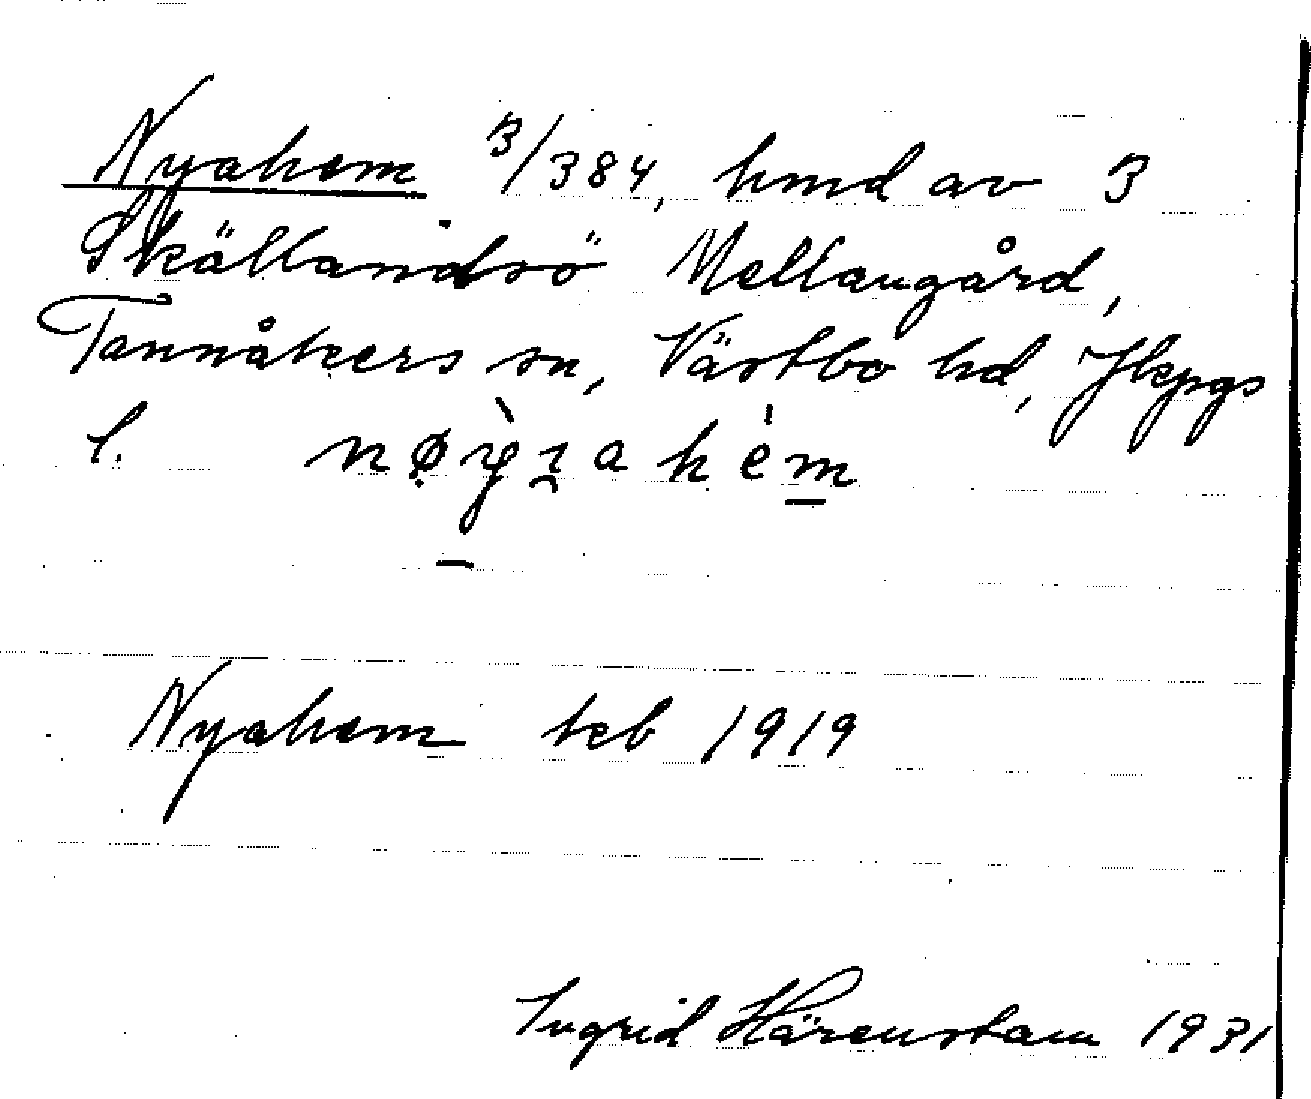 Nyahem 3/384, hmd av 3
Skällandsö Mellangård,
Tannåkers sn, Västbo hd, Jkpgs
l.
Nyahem teb 1919
Ingrid Härenstam 1931